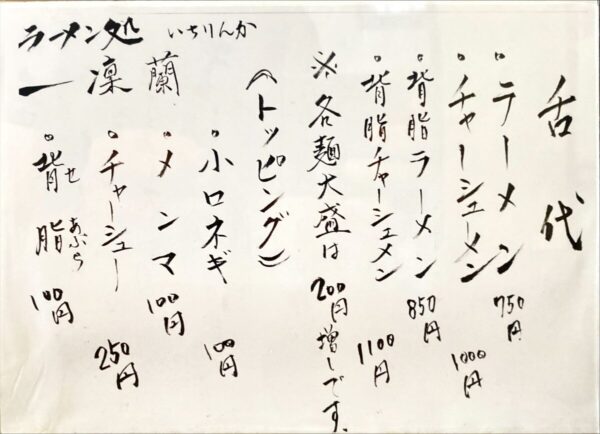 舌代
。ラーメン 750円
。チャーシューメン 1000円
。背脂ラーメン 850円
。背脂チャーシュメン 1100円
※各麺大盛は200円増しです。
(トッピング)
。小口ネギ 100円
。メンマ 100円
。チャーシュー 250円
。背脂 100円
せあぶら
ラーメン処 いちりんか
一凜蘭